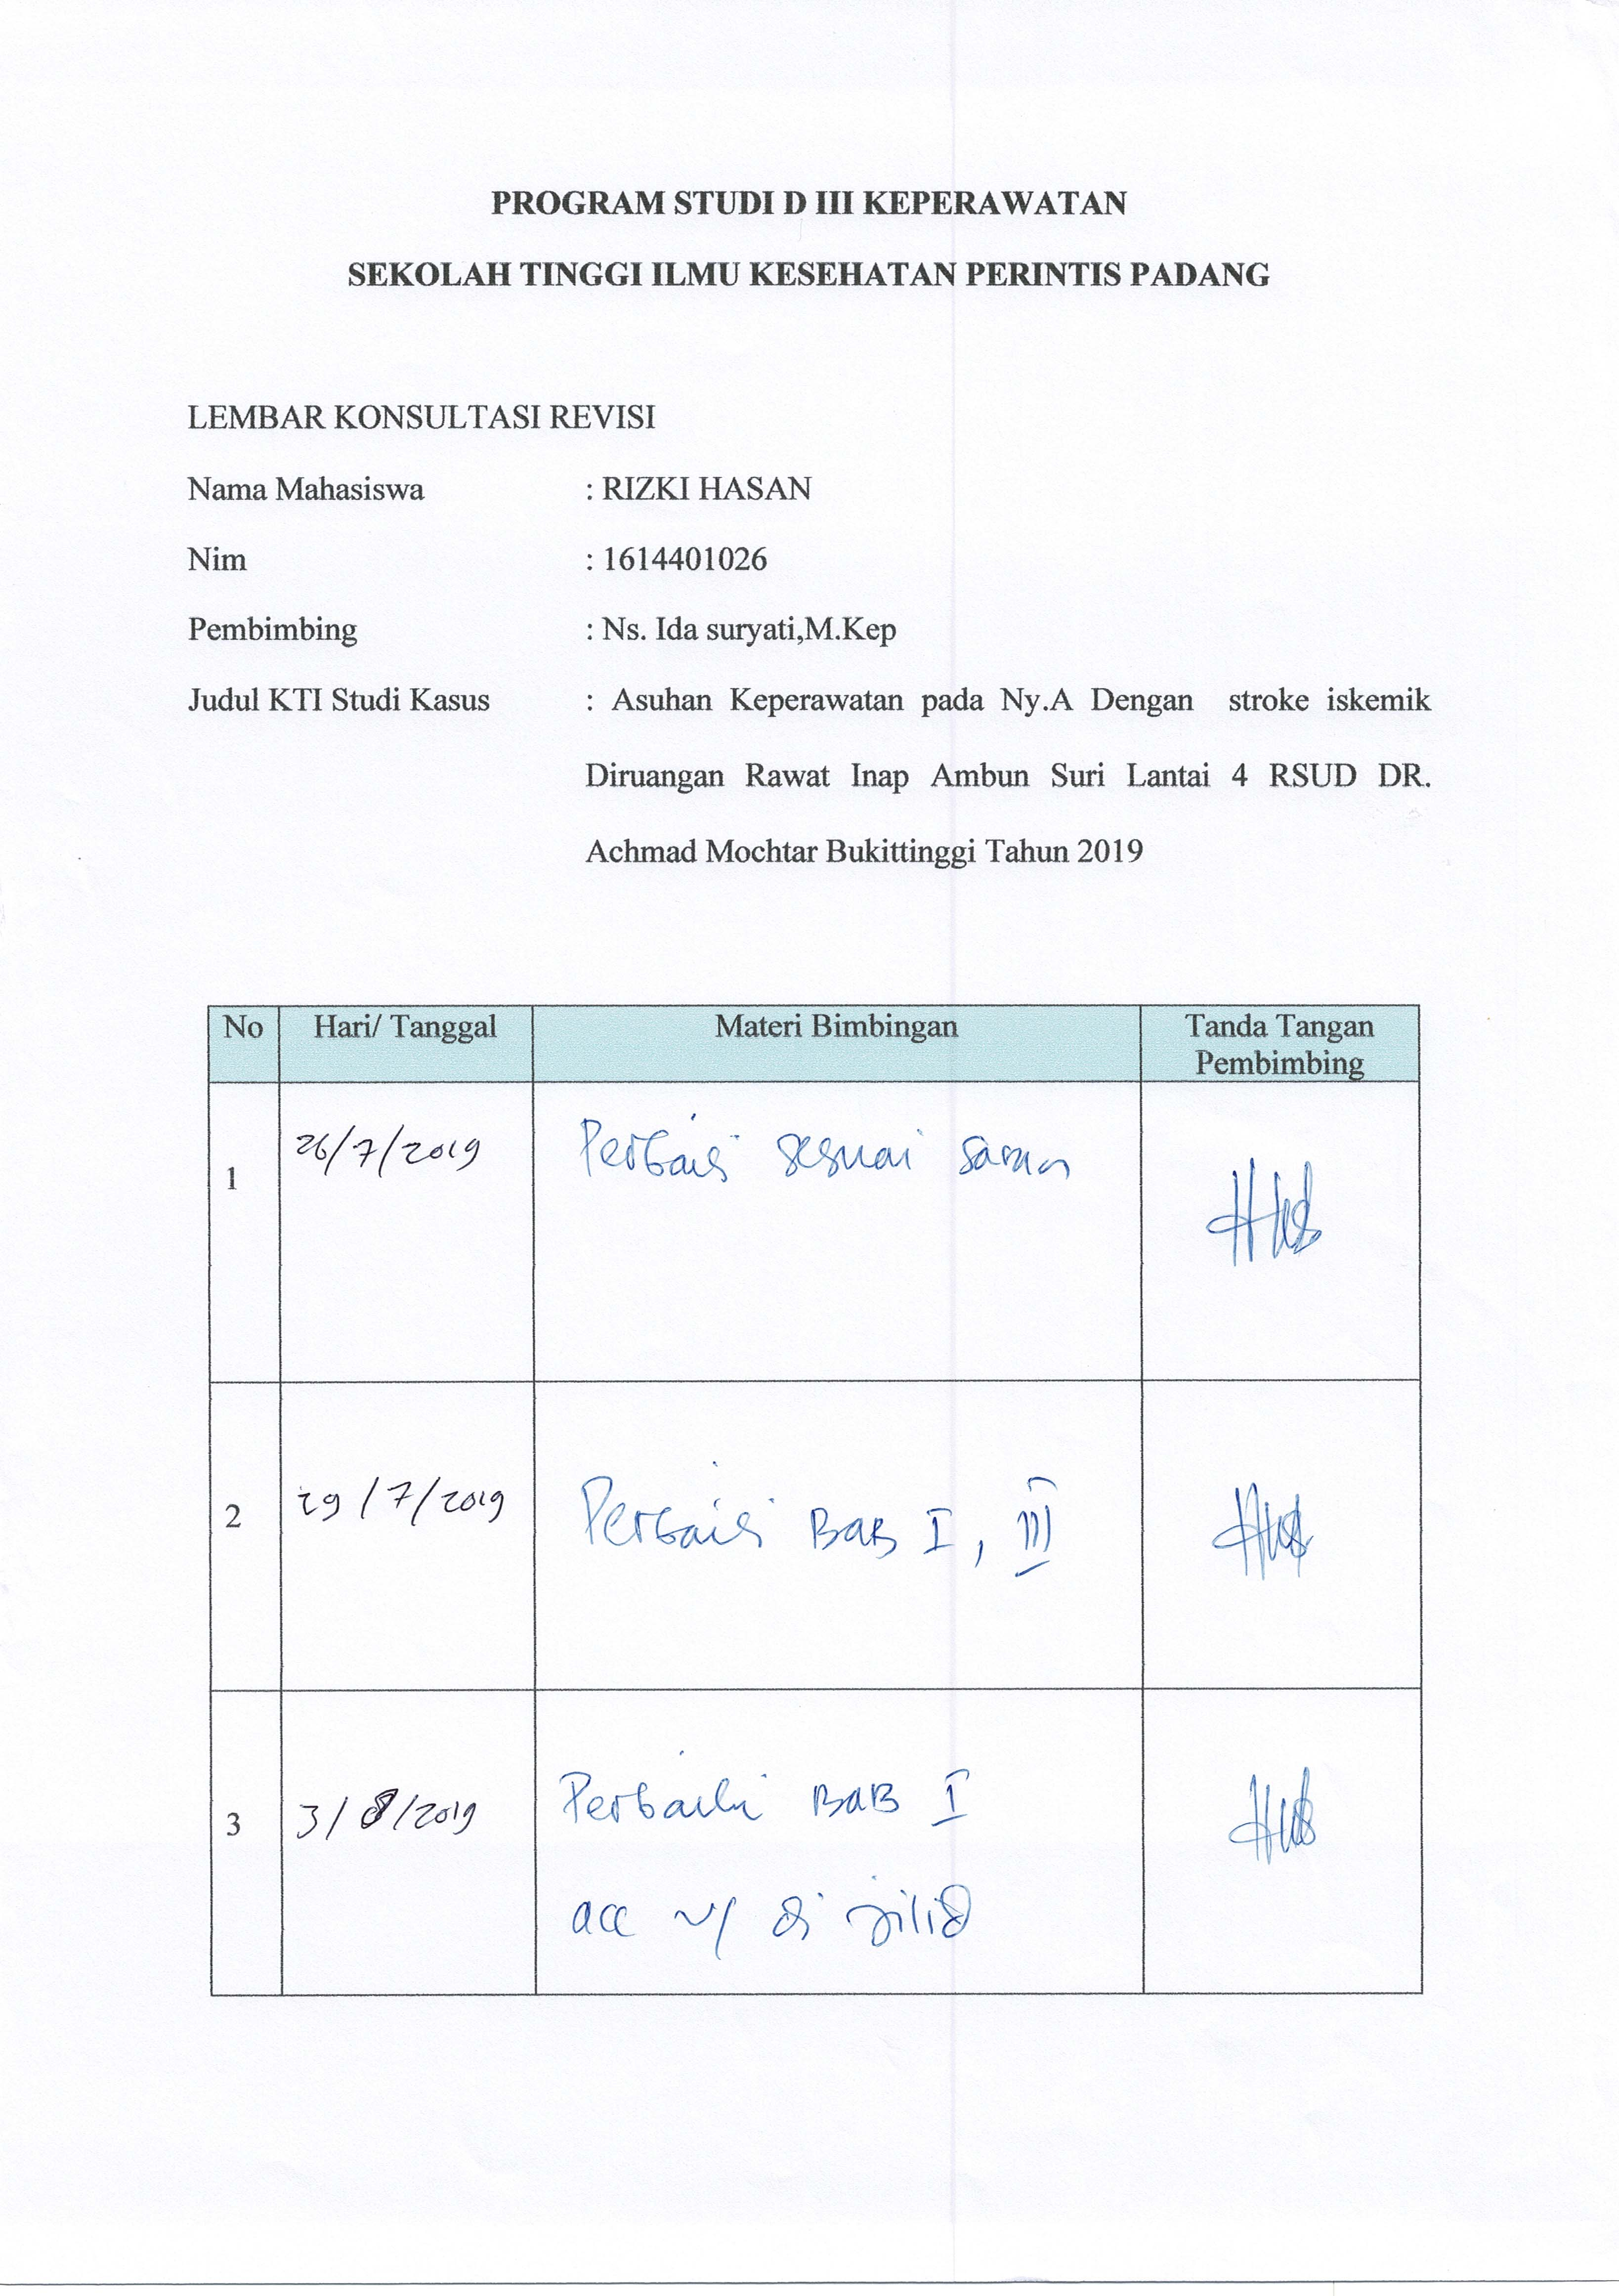 PROGRAM STUDI D III KEPERAWATAN
SEKOLAH TINGGI ILMU KESEHATAN PERINTIS PADANG
LEMBAR KONSULTASI REVISI
Nama Mahasiswa : RIZKI HASAN
Nim : 1614401026
Pembimbing : Ns. Ida suryati,M.Kep
Judul KTI Studi Kasus : Asuhan Keperawatan pada Ny.A Dengan stroke iskemik
Diruangan Rawat Inap Ambun Suri Lantai 4 RSUD DR.
Achmad Mochtar Bukittinggi Tahun 2019
No Hari/ Tanggal Materi Bimbingan Tanda Tangan
Pembimbing
1 26/7/2019 Perbaiki sesuai saran
2 29/7/2019 Perbaiki BAB I, III
3 3/8/2019 Perbaiki BAB I
acc u/ di jilid